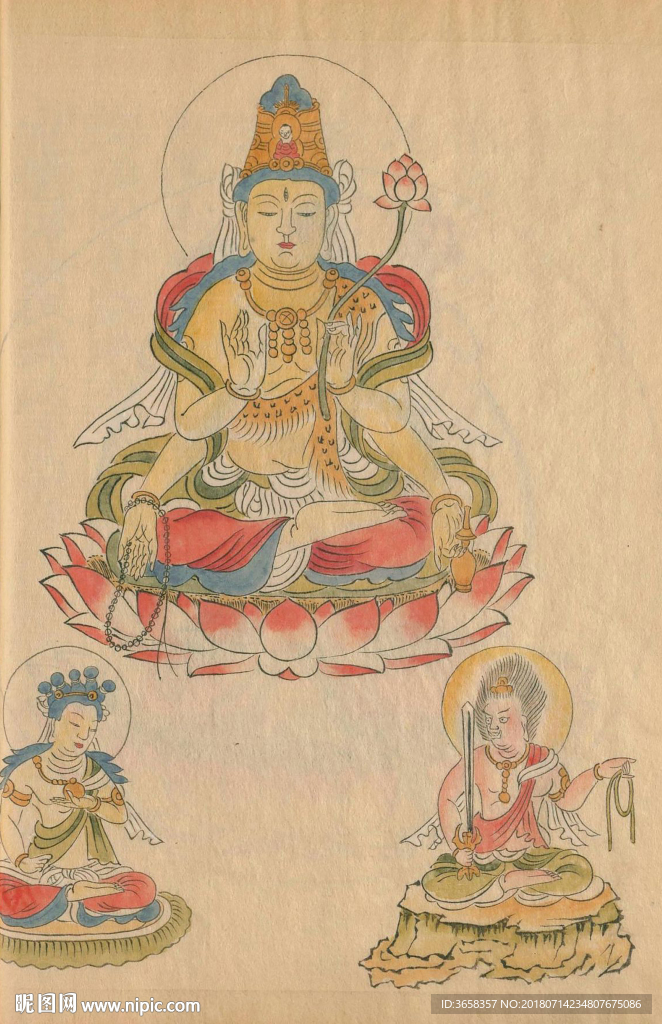 昵图网 www.nipic.com
ID:3658357 NO:20180714234807675086